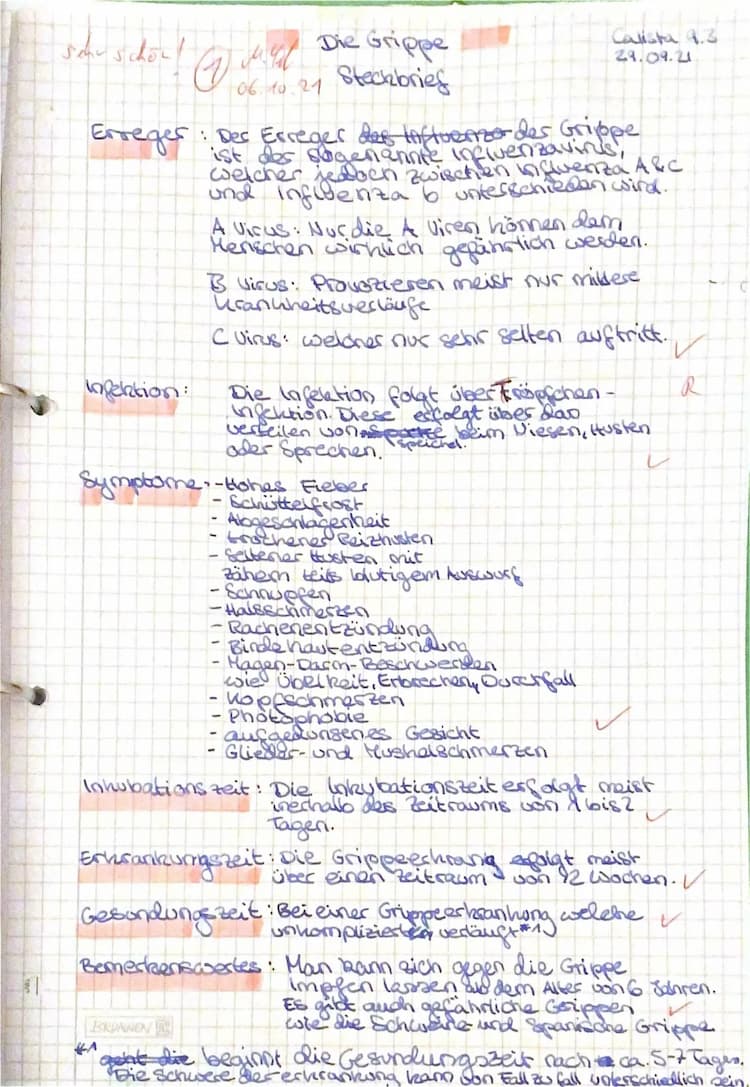 Die Grippe
Steckbrief
Calista 9.3
29.09.21
sehr schön!
1
06.10.21
Erreger: Der Erreger der Influenza der Grippe
ist der sogenannte Influenzavirus,
welcher jedoch zwischen Influenza A&C
und Influenza b unterschieden wird.
A Virus: Nur die A Viren können dem
Menschen wirklich gefährlich werden.
B Virus: Provozieren meist nur mildere
Krankheitsverläufe
C Virus: welcher nur sehr selten auftritt.
Infektion: Die Infektion folgt über Tröpfchen-
R
Infektion. Diese erfolgt über das
verteilen von Speichel beim Niesen, Husten
oder Sprechen.
Symptome: - Hohes Fieber
- Schüttelfrost
- Abgeschlagenheit
- trockener Reizhusten
- seltener Husten mit
zähem teils blutigem Auswurf
- Schnupfen
- Halsschmerzen
- Rachenentzündung
- Bindehautentzündung
- Magen-Darm-Beschwerden
wie Übelkeit, Erbrechen, Durchfall
- Kopfschmerzen
- Photophobie
- aufgedunsenes Gesicht
- Glieder- und Muskelschmerzen
Inkubationszeit: Die Inkubationszeit erfolgt meist
inerhalb des Zeitraums von 1 bis 2
Tagen.
Erkrankungszeit: Die Grippeerkrang erfolgt meist
über einen Zeitraum von 2 Wochen.
Gesundungszeit: Bei einer Grippeerkrankung welche
unkompliziert verläuft *1)
Bemerkenswertes: Man kann sich gegen die Grippe
Impfen lassen ab dem Alter von 6 Jahren.
Es gibt auch gefährliche Grippen
wie die Schweine und Spanische Grippe
BRUNNEN
*1 geht die beginnt die Gesundungszeit nach ca. 5-7 Tagen.
Die Schwere der erkrankung kann von Fall zu Fall unterschiedlich sein.